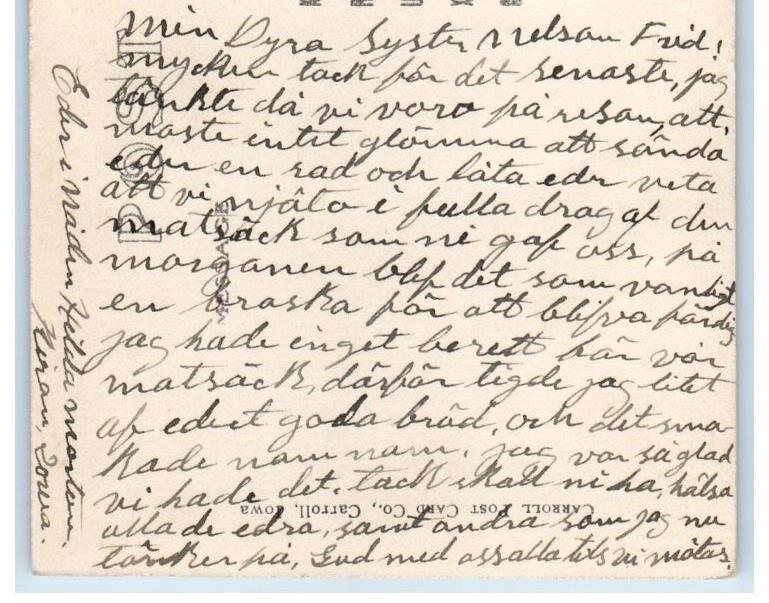 min Dyra Syster Nelson Frid!
mycken tack för det senaste, jag
tänkte då vi voro på resan, att
maste intet glömma att sända
eder en rad och låta eder veta
att vi njöto i fulla drag af den
matsäck som ni gaf oss, på
morganen blef det som vanligt
en braska för att blifva färdig
jag hade inget berett här vår
matsäck, därför tigde jag litet
af edert goda bröd, och det sma-
kade nam nam, jag var så glad
vi hade det. tack skall ni ha, hälsa
alla de edra, samt andra som jag nu
tänker på, Gud med oss alla tils vi mötas.
Eder i Nåden Hilda
Kiron, Iowa.
POST CARD
MESSAGE
CARROLL POST CARD CO., Carroll, Iowa